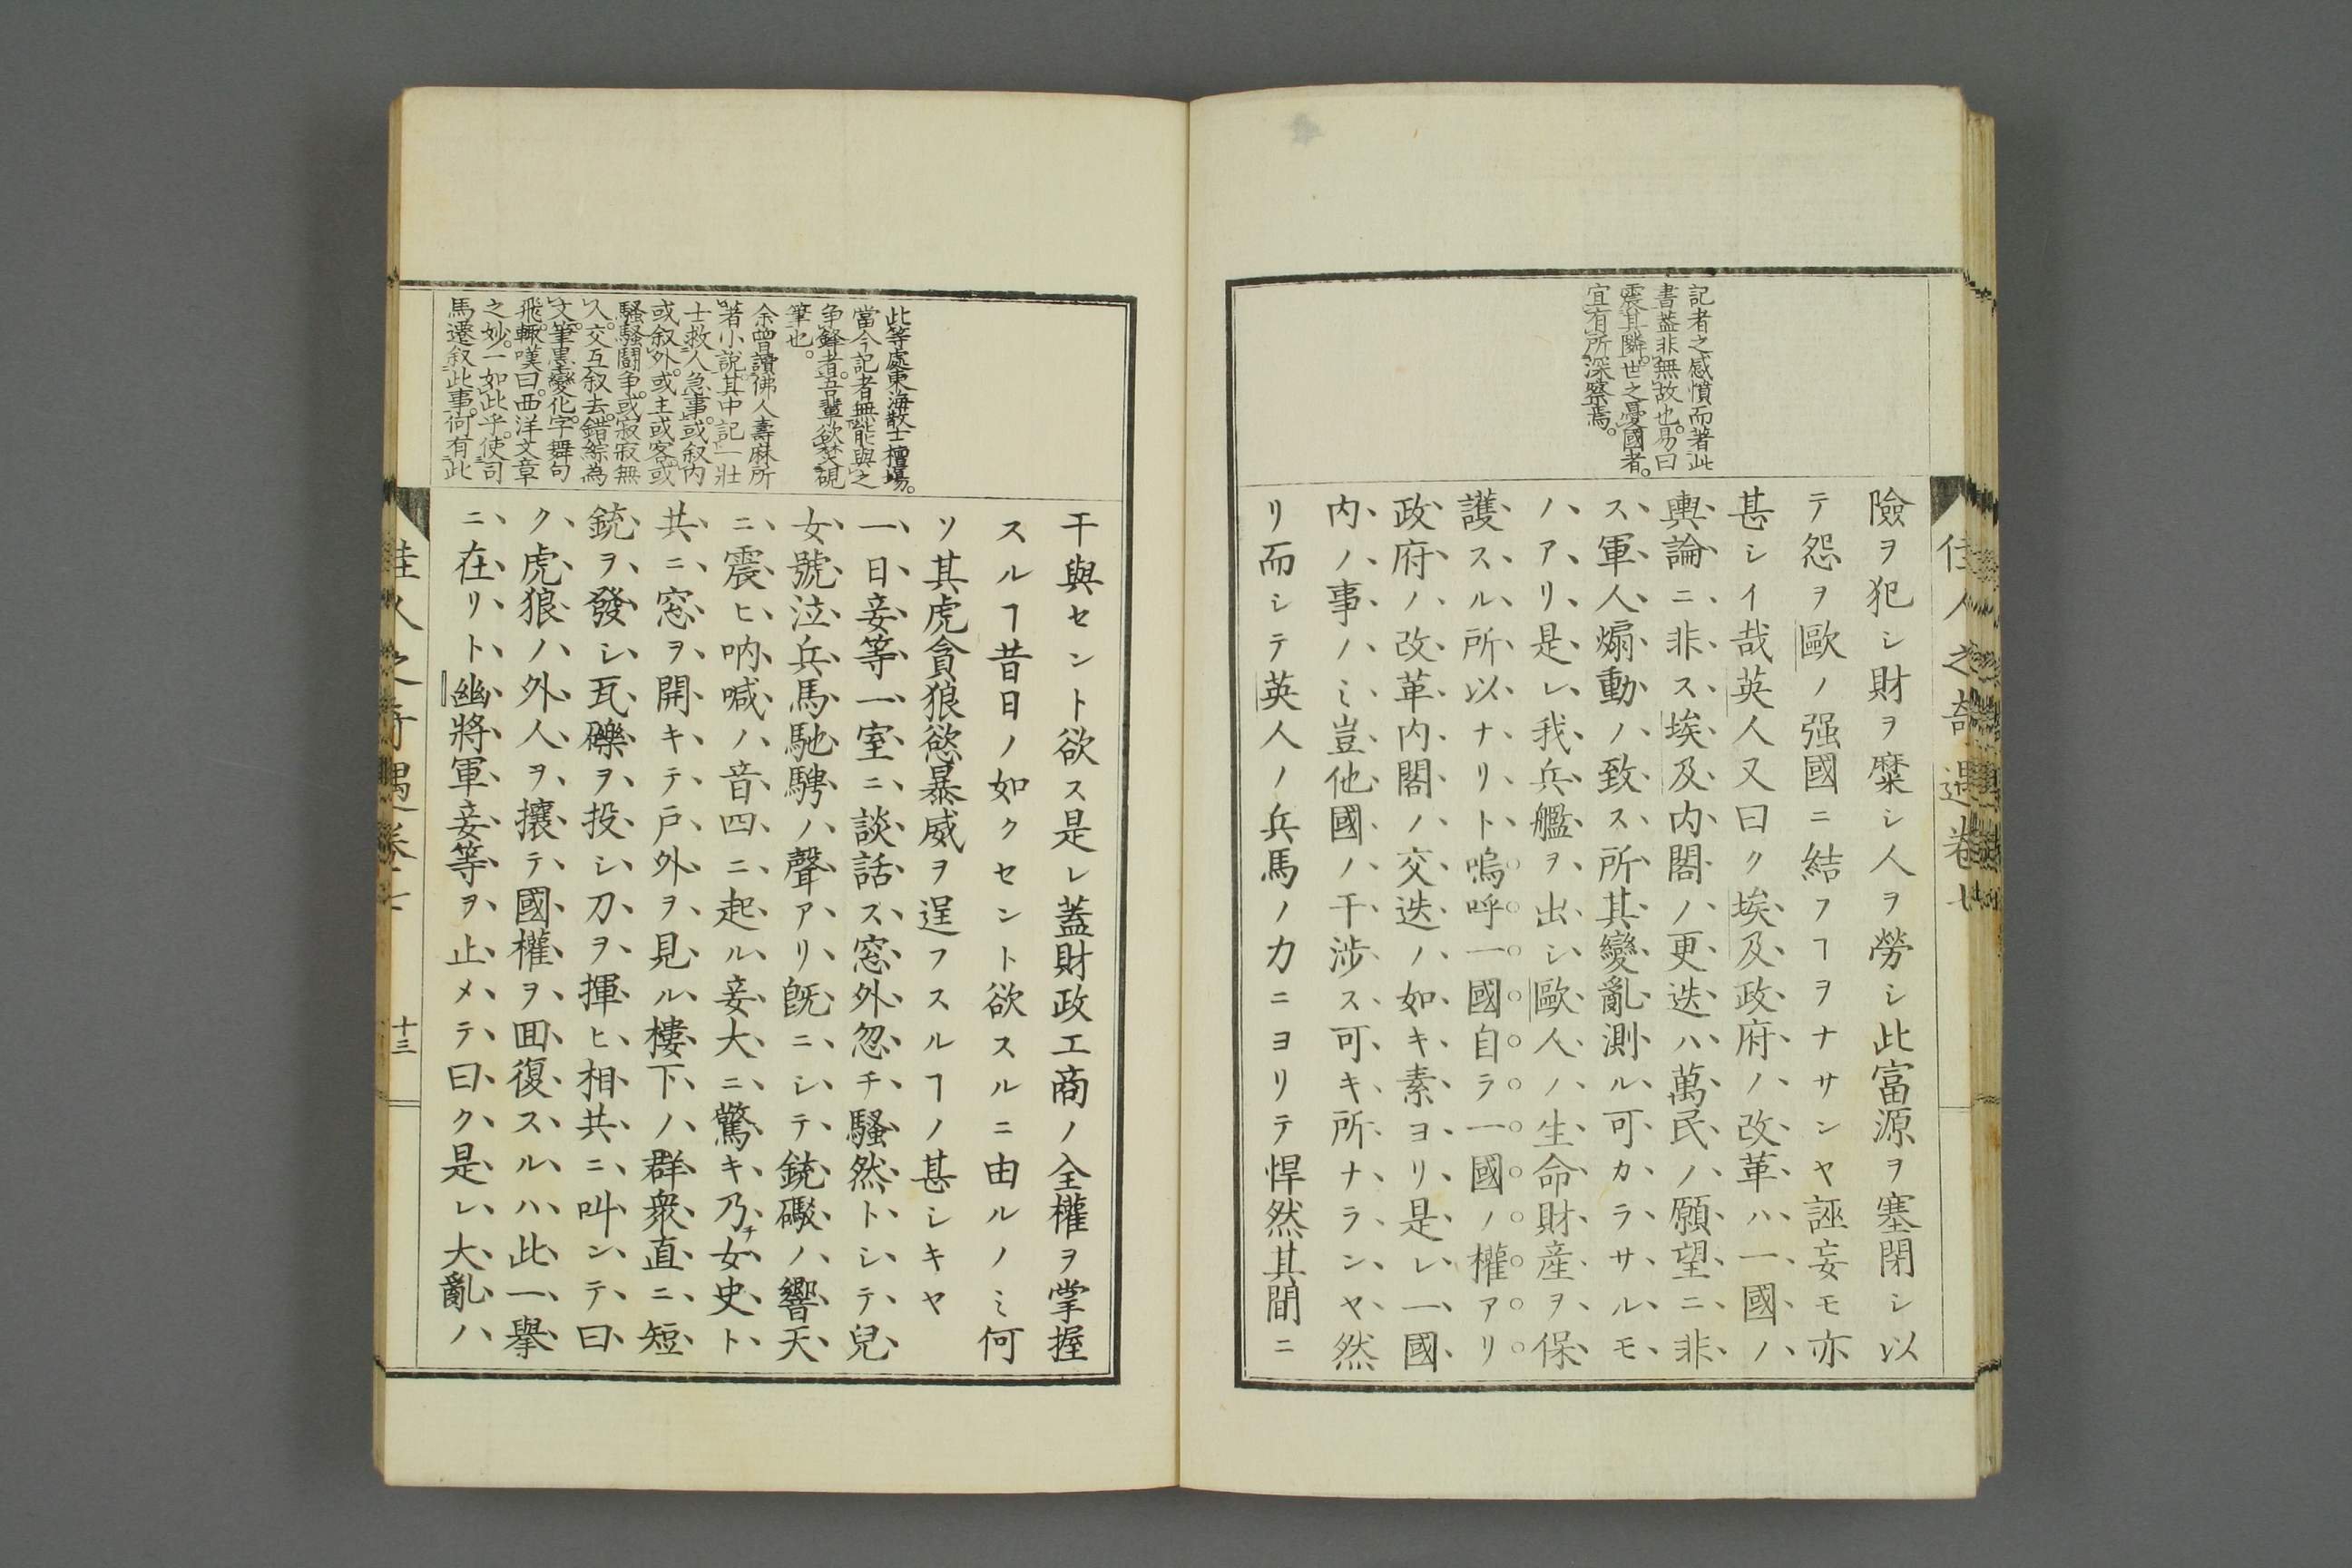 佳人之奇遇卷七
記者之感憤而著此
書蓋非無故也。易曰
震其隣。世之憂國者。
宜有所深察焉。
險ヲ犯シ財ヲ糜シ人ヲ勞シ此富源ヲ塞閉シ以
テ怨ヲ歐ノ强國ニ結フヿヲナサンヤ誣妄モ亦
甚シイ哉英人又曰ク埃及政府ノ改革ハ一國ノ
輿論ニ非ス埃及内閣ノ更迭ハ萬民ノ願望ニ非
ス軍人煽動ノ致ス所其變亂測ル可カラサルモ
ノアリ是レ我兵艦ヲ出シ歐人ノ生命財產ヲ保
護スル所以ナリト嗚呼一國自ラ一國ノ權アリ
政府ノ改革内閣ノ交迭ノ如キ素ヨリ是レ一國
内ノ事ノミ豈他國ノ干涉ス可キ所ナランヤ然
リ而シテ英人ノ兵馬ノ力ニヨリテ悍然其間ニ
此等處東海散士擅場。
當今記者無能與之
争鋒者。吾輩欲焚硯
筆也。
余曾讀佛人壽麻所
著小說其中記一壯
士救人急事。或叙内
或叙外。或主或客。或
騷騷鬪争。或寂寂無
人。交互叙去。錯綜為
文。筆墨變化。字舞句
飛。輙嘆曰。西洋文章
之妙。一如此乎。使司
馬遷叙此事。何有此
干與セント欲ス是レ蓋財政工商ノ全權ヲ掌握
スルヿ昔日ノ如クセント欲スルニ由ルノミ何
ソ其虎貪狼慾暴威ヲ逞フスルヿノ甚シキヤ
一日妾等一室ニ談話ズ窓外忽チ騷然トシテ兒
女號泣兵馬馳騁ノ聲アリ旣ニシテ銃礮ノ響天
ニ震ヒ吶喊ノ音四ニ起ル妾大ニ驚キ乃チ女史ト
共ニ窓ヲ開キテ戶外ヲ見ル樓下ノ群衆直ニ短
銃ヲ發シ瓦礫ヲ投シ刀ヲ揮ヒ相共ニ叫ンテ曰
ク虎狼ノ外人ヲ攘テ國權ヲ回復スルハ此一擧
ニ在リト幽將軍妾等ヲ止メテ曰ク是レ大亂ハ
佳人之奇遇卷七
十三